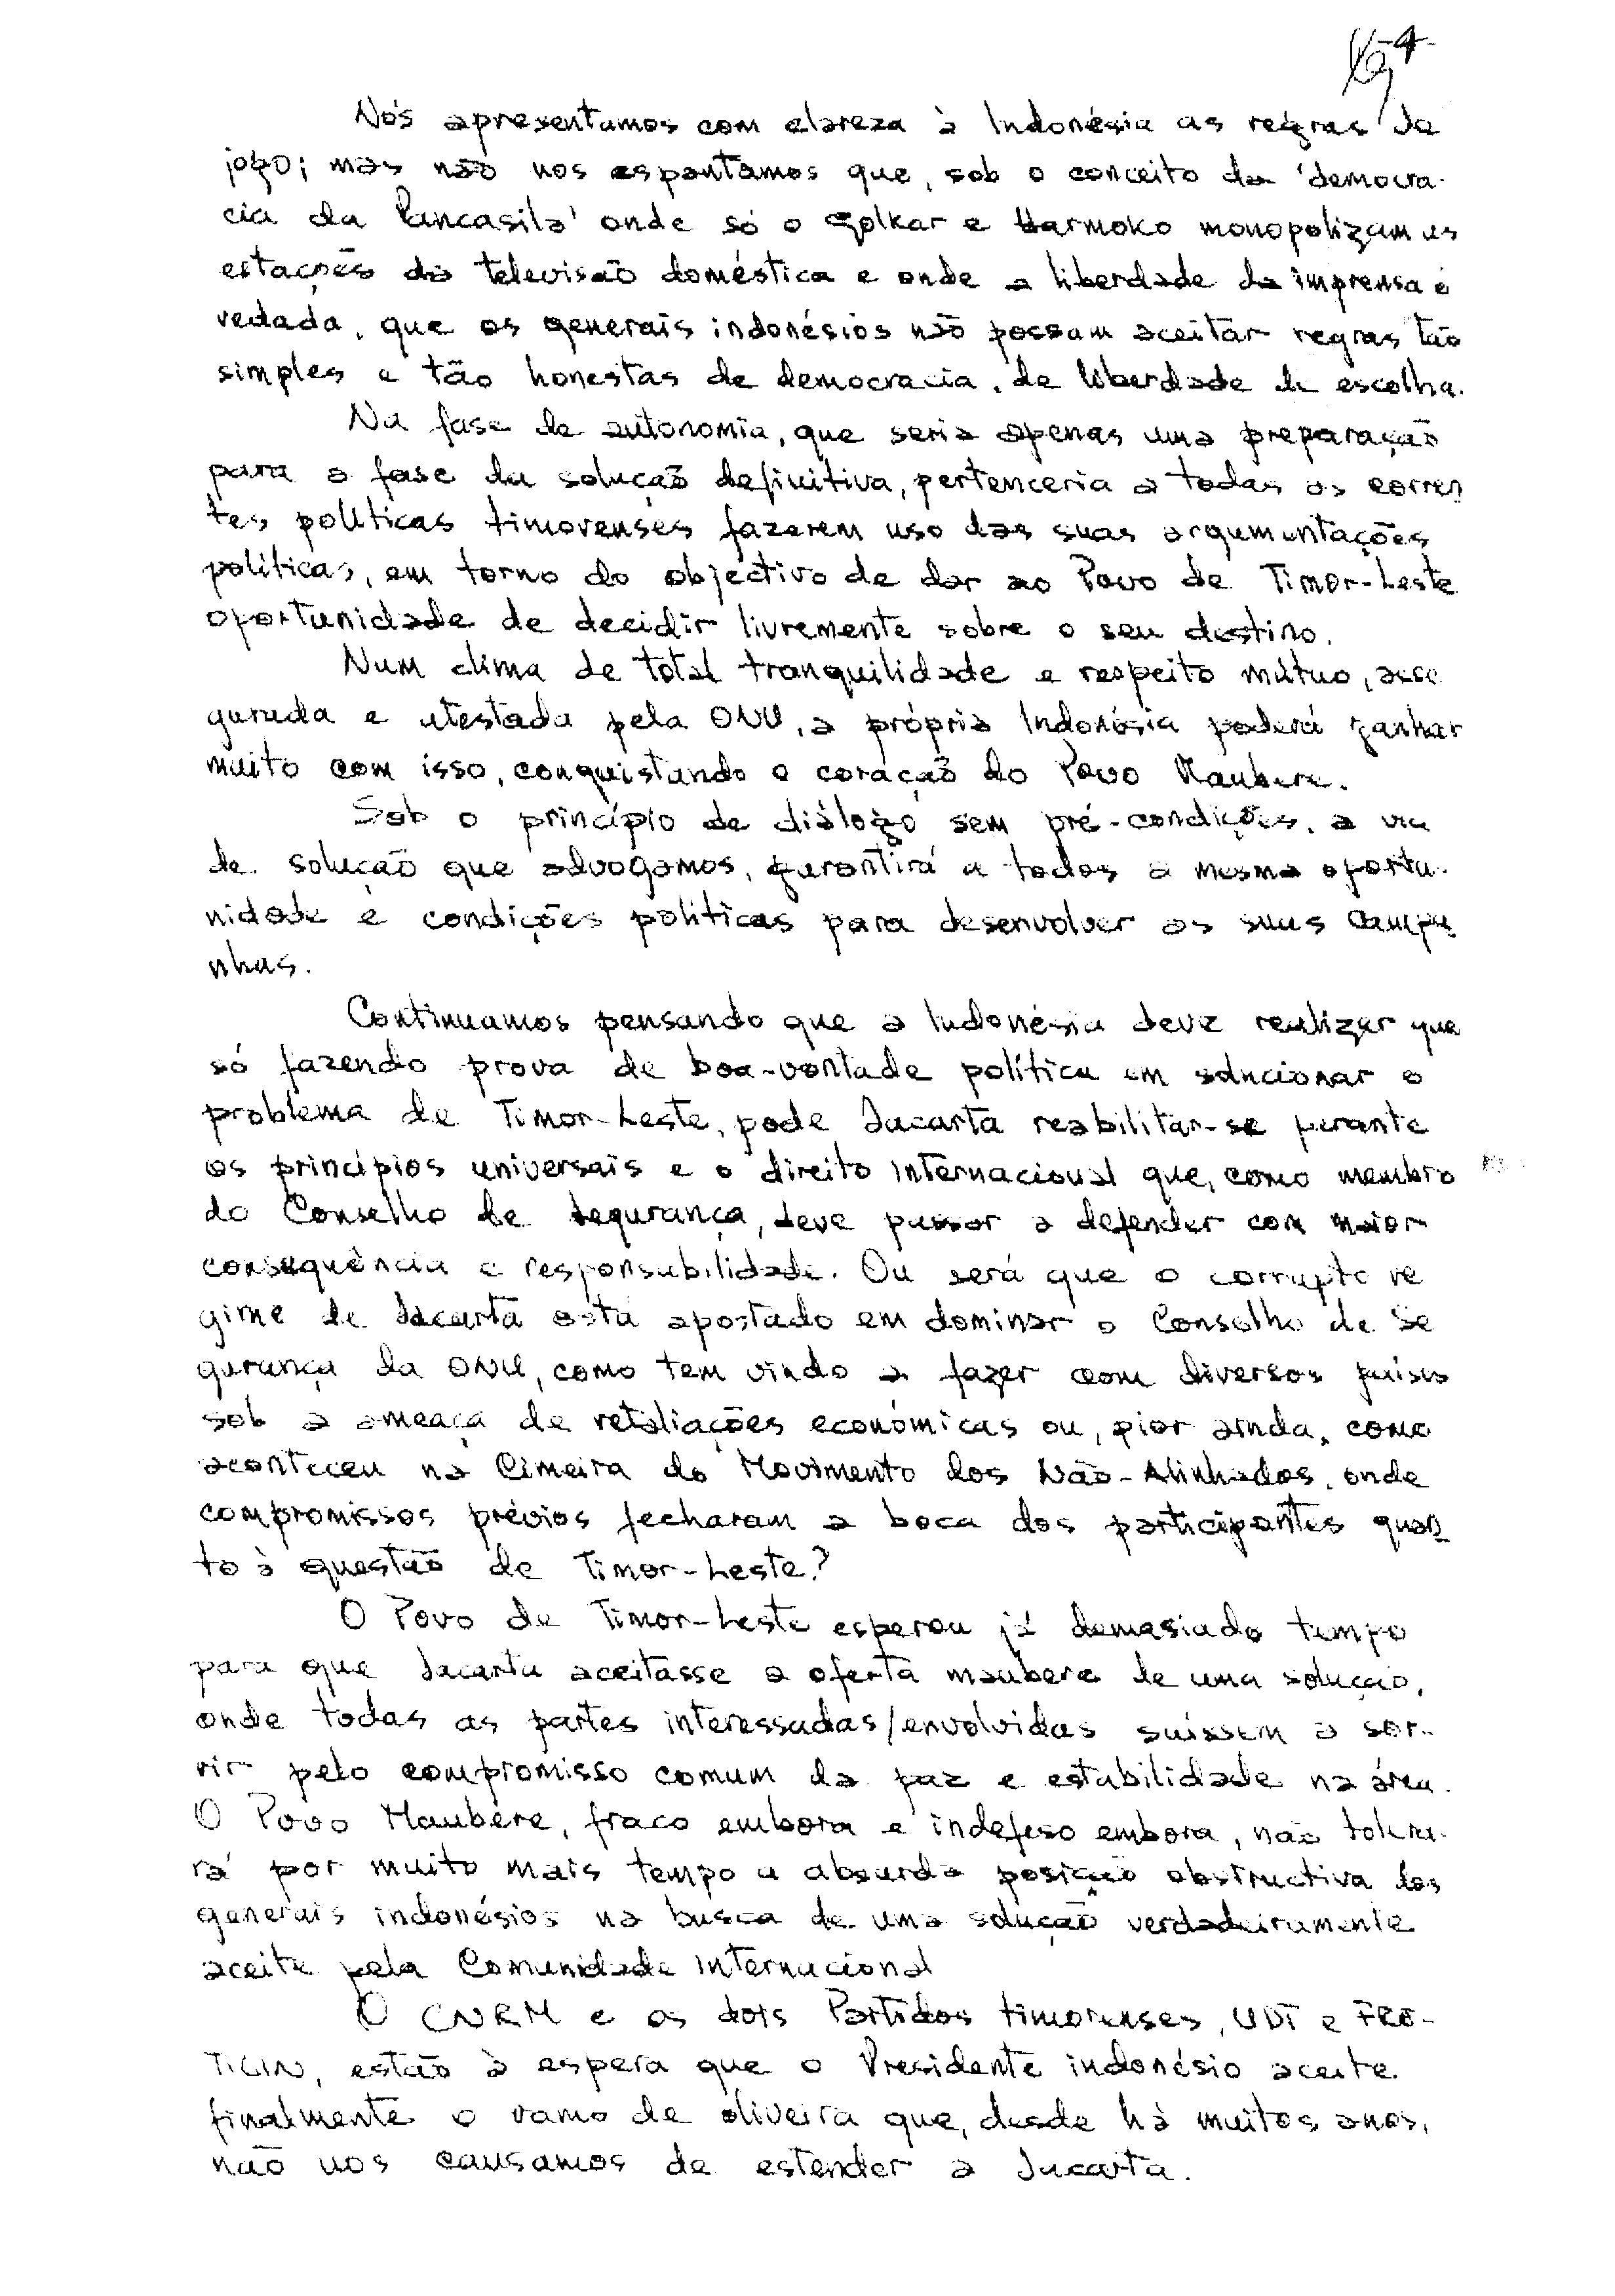 -4-
Nós apresentamos com clareza à Indonésia as regras do
jogo; mas não nos espantamos que, sob o conceito da 'democra-
cia da Pancasila' onde só o Golkar e Harmoko monopolizam as
estações da televisão doméstica e onde a liberdade da imprensa é
vedada, que os generais indonésios não possam aceitar regras tão
simples e tão honestas de democracia, de liberdade de escolha.
Na fase de autonomia, que seria apenas uma preparação
para a fase da solução definitiva, pertenceria a todas as corren
tes políticas timorenses fazerem uso das suas argumentações
políticas, em torno do objectivo de dar ao Povo de Timor-Leste
oportunidade de decidir livremente sobre o seu destino.
Num clima de total tranquilidade e respeito mútuo, asse
gurada e atestada pela ONU, a própria Indonésia poderá ganhar
muito com isso, conquistando o coração do Povo Maubere.
Sob o princípio de diálogo sem pré-condições, a via
de solução que advogamos, garantirá a todos a mesma oportu-
nidade e condições políticas para desenvolver as suas campa
nhas.
Continuamos pensando que a Indonésia deve realizar que
só fazendo prova de boa-vontade política em solucionar o
problema de Timor-Leste, pode Jacarta reabilitar-se perante
os princípios universais e o direito internacional que, como membro
do Conselho de Segurança, deve passar a defender com maior
consequência e responsabilidade. Ou será que o corrupto re
gime de Jacarta está apostado em dominar o Conselho de Se
gurança da ONU, como tem vindo a fazer com diversos países
sob a ameaça de retaliações económicas ou, pior ainda, como
aconteceu na Cimeira do Movimento dos Não-Alinhados, onde
compromissos prévios fecharam a boca dos participantes quan
to à questão de Timor-Leste?
O Povo de Timor-Leste esperou já demasiado tempo
para que Jacarta aceitasse a oferta maubere de uma solução,
onde todas as partes interessadas/envolvidas saíssem a sor-
rir pelo compromisso comum da paz e estabilidade na área.
O Povo Maubere, fraco embora e indefeso embora, não tolera-
rá por muito mais tempo a absurda posição obstructiva dos
generais indonésios na busca de uma solução verdadeiramente
aceite pela Comunidade Internacional
O CNRM e os dois Partidos timorenses, UDT e FRE-
TILIN, estão à espera que o Presidente indonésio aceite
finalmente o ramo de oliveira que, desde há muitos anos,
não nos cansamos de estender a Jacarta.